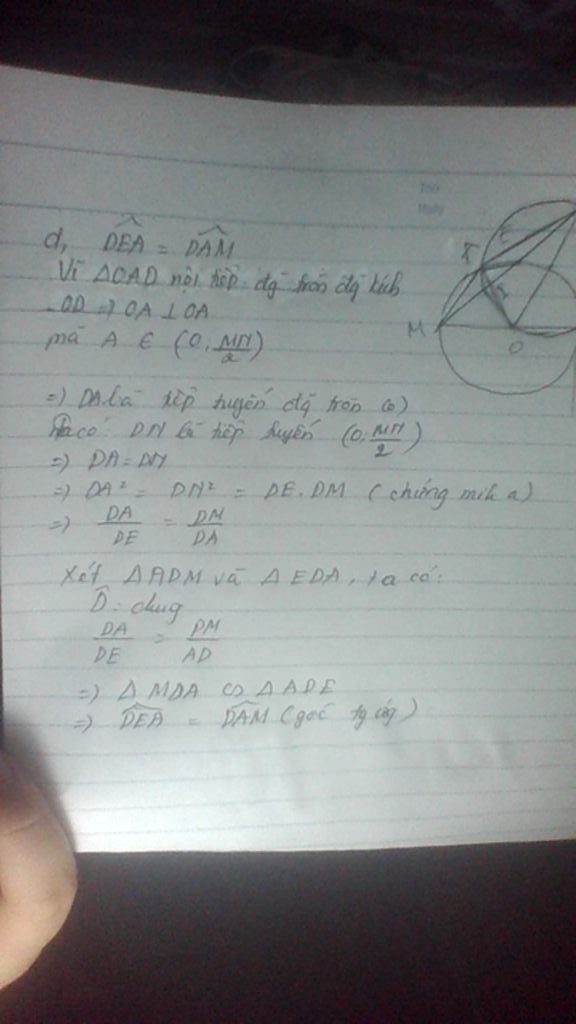 d, DEA = DAM
Vì ΔOAD nội tiếp đg tròn đg kính
OD => OA ⊥ OA
mà A ∈ (O; MN/2)
=> DA là tiếp tuyến đg tròn (O)
Ta có: DN là tiếp tuyến (O; MN/2)
=> DA = DN
=> DA² = DN² = DE.DM (chứng mih a)
=> DA/DE = DM/DA
Xét ΔADM và ΔEDA, ta có:
D̂: chug
DA/DE = DM/AD
=> ΔMDA ∽ ΔADE
=> DEA = DAM (góc tg ứg)
Thứ
Ngày
E
M
O